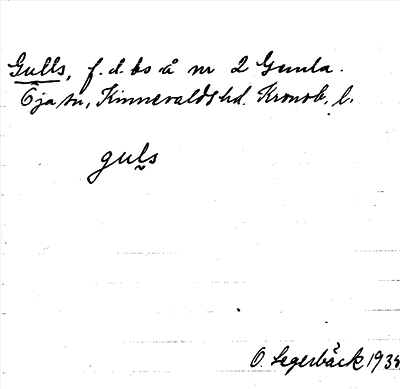 Gulls, f.d. bs å nr 2 Gunla.
Öja sn, Kinnevalds hd. Kronob. l.
guls
O. Segerbäck 1934